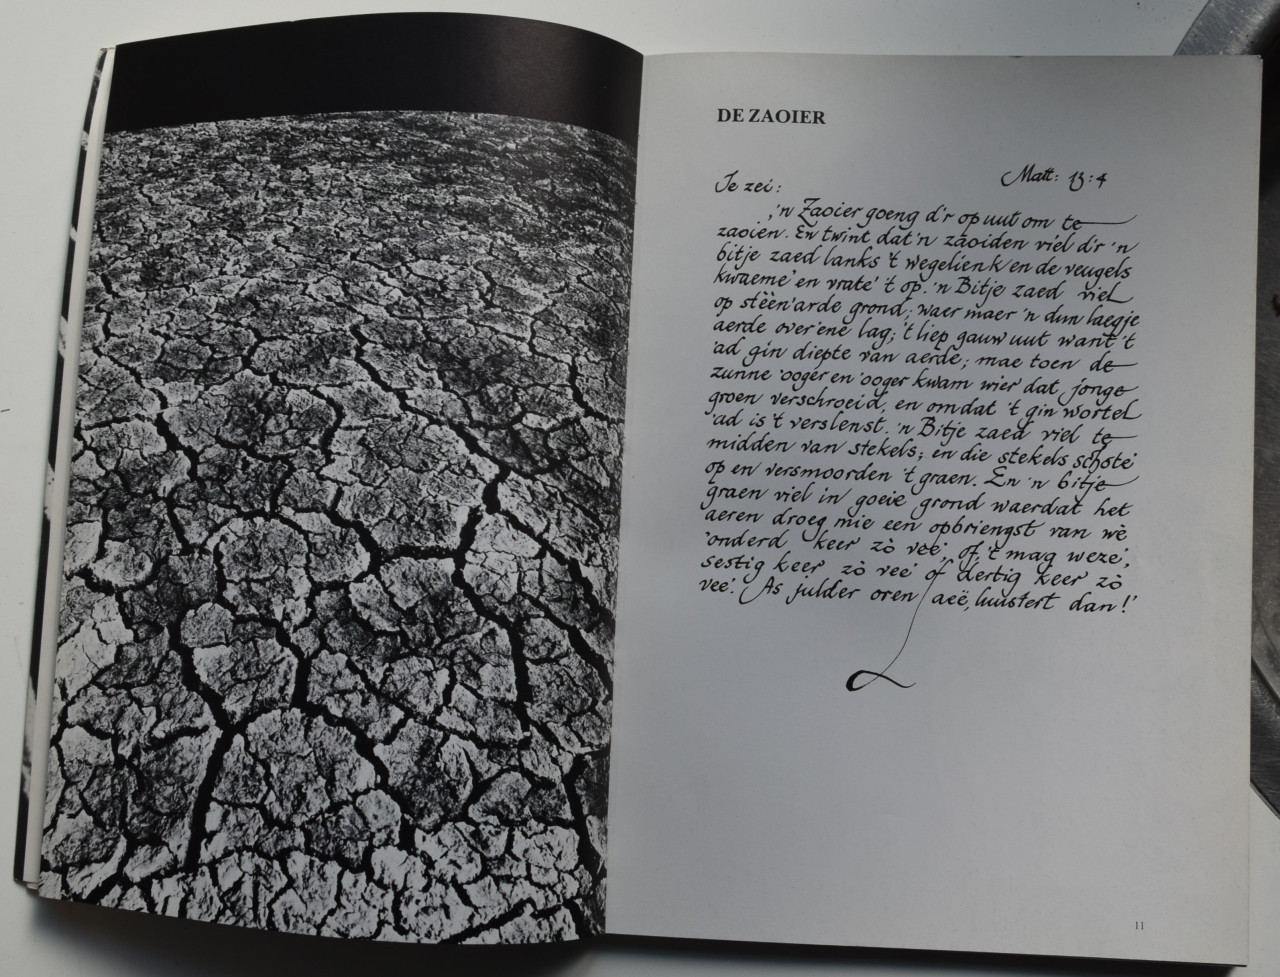 DE ZAOIER
Matt: 13:4
Je zei:
,'n Zaoier goeng d'r op uut om te
zaoien. En twint dat 'n zaoiden viel d'r 'n
bitje zaed lanks 't wegelienk en de veugels
kwaeme' en vrate' 't op. 'n Bitje zaed viel
op stêên'arde grond, waer maer 'n dun laegje
aerde over'ene lag; 't liep gauw uut want 't
'ad gin diepte van aerde; mae toen de
zunne 'ooger en 'ooger kwam wier dat jonge
groen verschroeid, en omdat 't gin wortel
'ad is 't verslenst. 'n Bitje zaed viel te
midden van stekels; en die stekels schote'
op en versmoorden 't graen. En 'n bitje
graen viel in goeie grond waerdat het
aeren droeg mie een opbriengst van wè
'onderd keer zò veé, of 't mag weze',
sestig keer zò veé of dertig keer zò
veé. As julder oren aeë, luustert dan!'
11